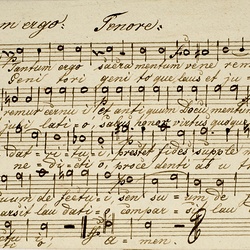 m ergo: Tenore:
Tantum ergo sacramentum vene rem
Geni tori geni to que laus et ju
remur cernui Et anti quum docu mento
jubi lati o salus honor virtus quoque
dat ri tu i prœstet fides supple m
ne dicti o, proce denti ab u
suum de fectu i sen su um de
par sit lau dati o compar sit lau
fectu i
o, a men.